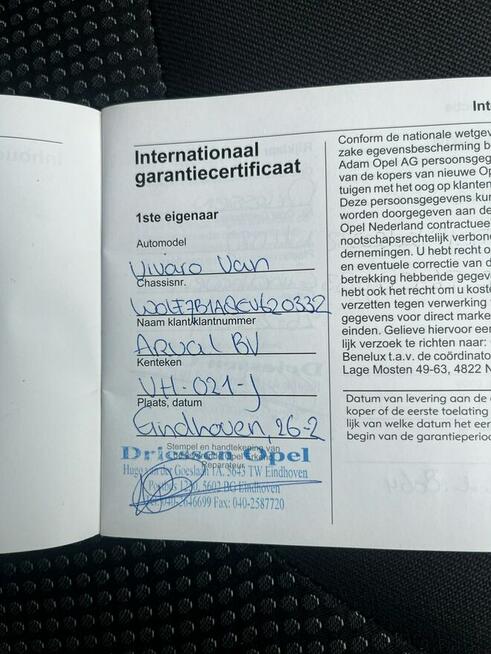 Int
Internationaal
garantiecertificaat
1ste eigenaar
Automodel
Vivaro Van
Chassisnr.
Naam klant/klantnummer
Arval BV
Kenteken
VH-021-J
Plaats, datum
Eindhoven, 26-2
Stempel en handtekening van
Driessen Opel
Reparateur
Hugo van der Goeslaan 1A, 5643 TW Eindhoven
5602 BG Eindhoven
Fax: 040-2587720
Conform de nationale wetgev
zake egevensbescherming b
Adam Opel AG persoonsgeg
van de kopers van nieuwe Op
tuigen met het oog op klanten
Deze persoonsgegevens kun
worden doorgegeven aan de
Opel Nederland contractuee
nootschapsrechtelijk verbon
dernemingen. U hebt recht o
en eventuele correctie van d
betrekking hebbende gegev
hebt ook het recht om u koste
verzetten tegen verwerking
gegevens voor direct marke
einden. Gelieve hiervoor een
lijk verzoek te richten naar:
Benelux t.a.v. de coördinato
Lage Mosten 49-63, 4822 N
Datum van levering aan de
koper of de eerste toelating
lijk van welke datum het eer
begin van de garantieperiod